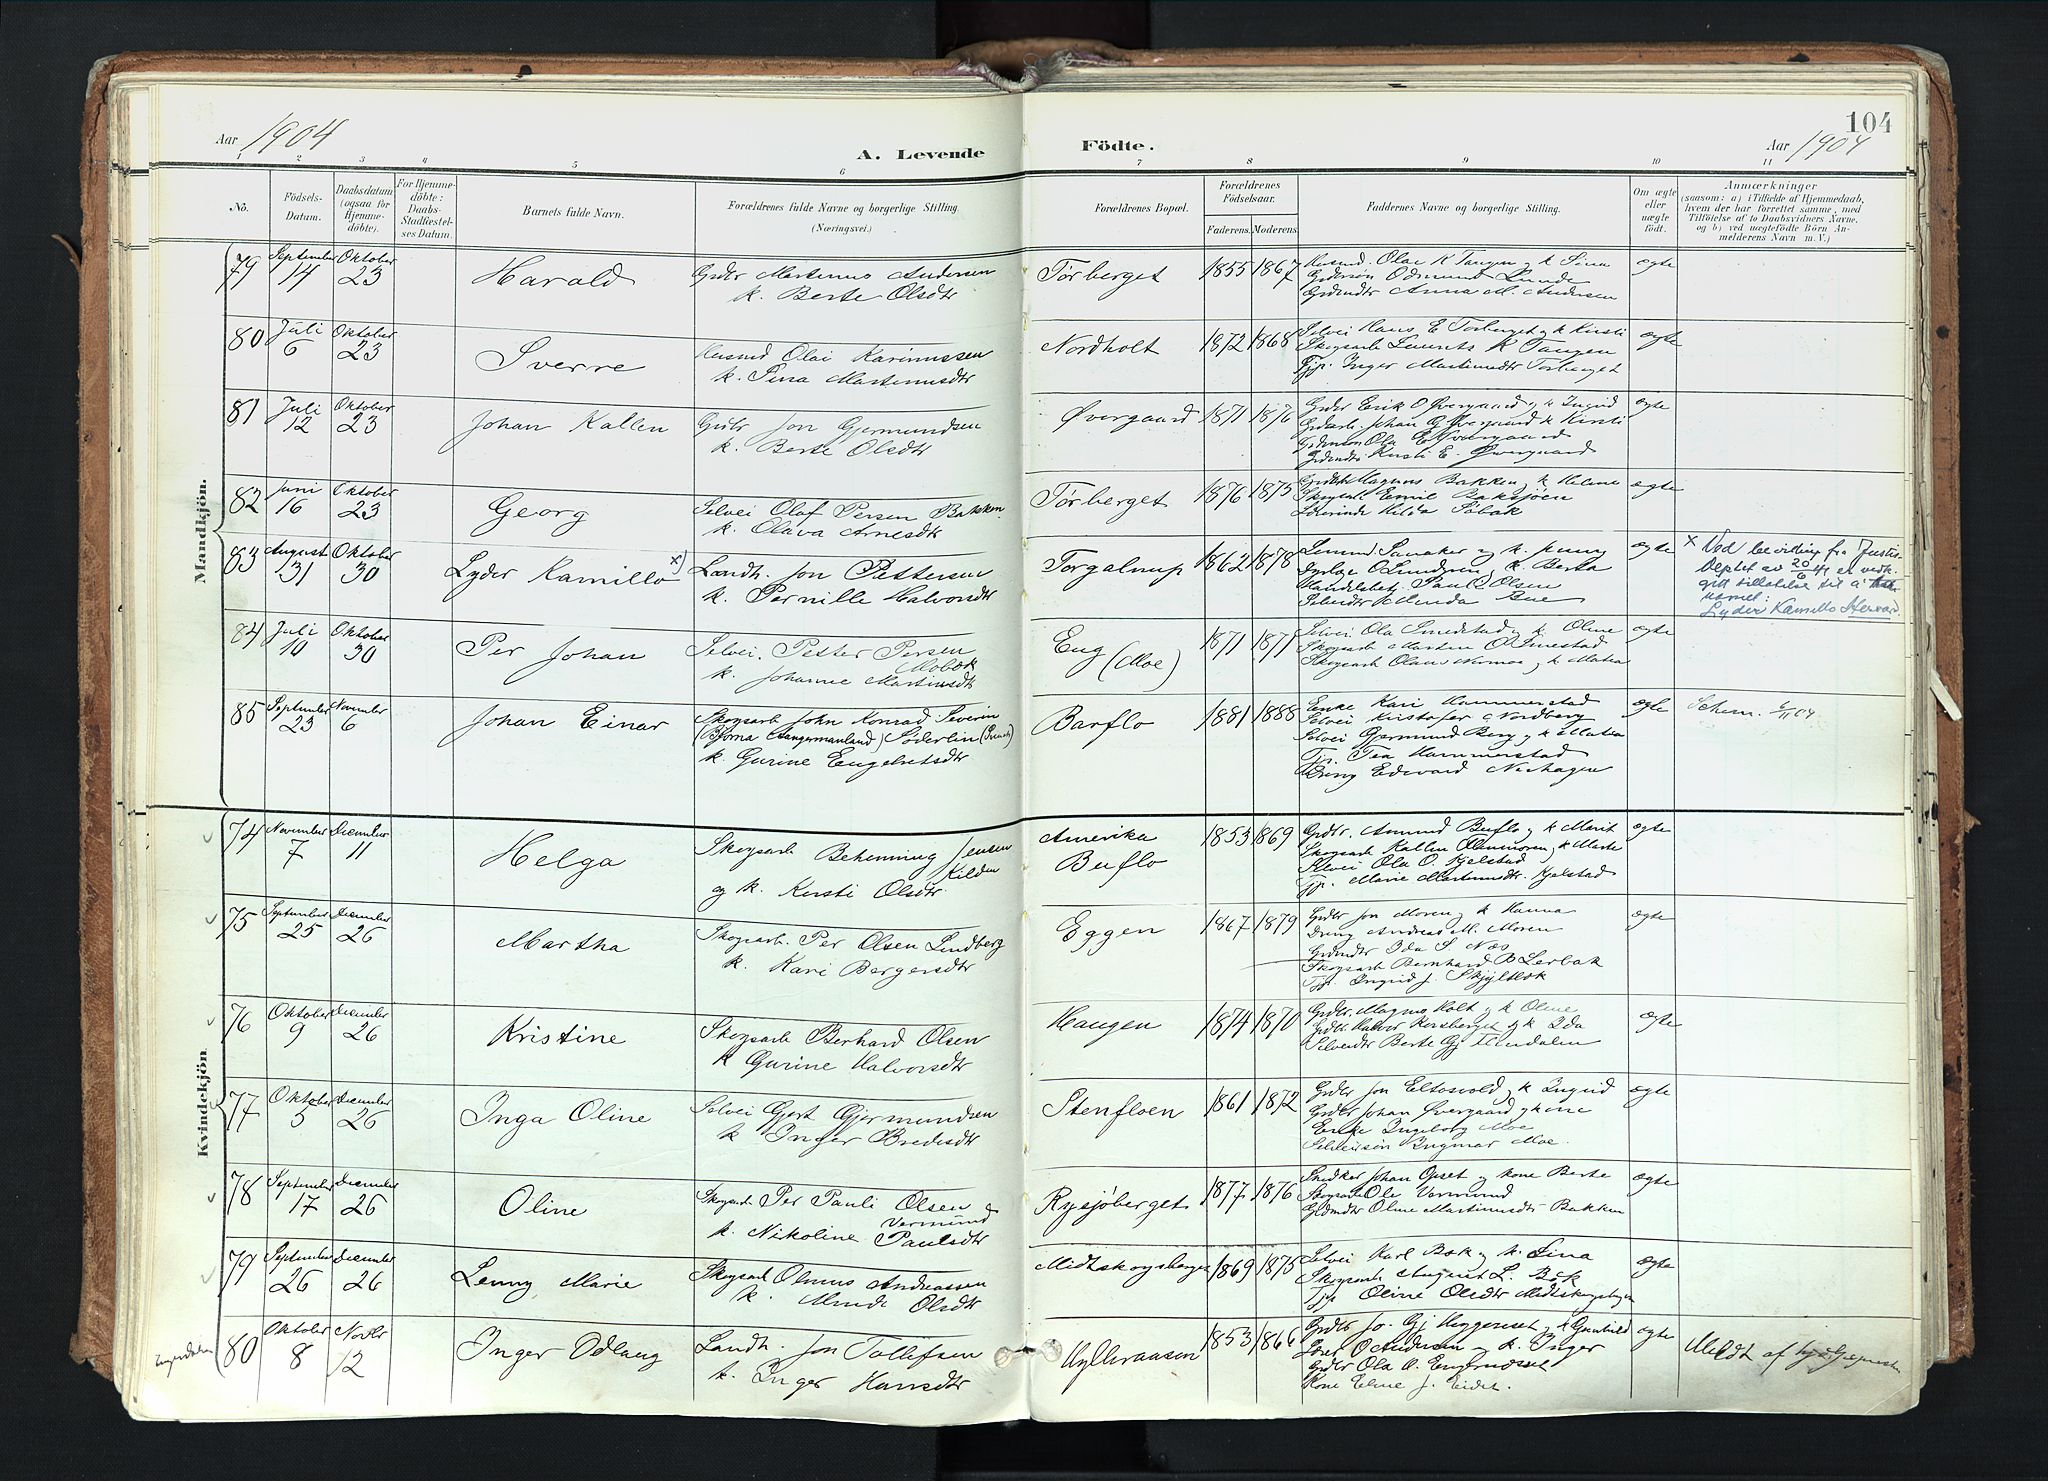 104
Aar 1904
A. Levende Födte.
Aar 1904
1 2 3 4 5 6 7 8 9 10 11
No.
Födsels-
Datum.
Daabsdatum
(ogsaa for
Hjemme-
döbte).
For Hjemme-
döbte:
Daabs-
Stadfæstel-
ses Datum.
Barnets fulde Navn.
Forældrenes fulde Navne og borgerlige Stilling
(Næringsvei.)
Forældrenes Bopæl.
Forældrenes
Födselsaar.
Faderens. Moderens.
Faddernes Navne og borgerlige Stilling.
Om ægte
eller
uægte
födt.
Anmærkninger
(saasom: a) i Tilfælde af Hjemmedaab,
hvem der har forrettet samme, med
Tilföielse af to Daabsvidners Navne,
og b) ved uægtefödte Börn An-
melderens Navn m. V.)
Mandkjön.
79 September 14 Oktober 23 Harald
Grdbr Martinus Andersen
k. Berte Olsdtr
Törberget 1855 1867
Husmd. Olai K Tangen og k Sina
Grdersön Odmund Lunde
Grdmdtr Anna M. Andersen
ægte
80 Juli 6 Oktober 23 Sverre
Husmd Olai Karinussen
k. Sina Martinusdtr
Nordholt 1872 1868
Selvei Hans E Törberget og k Kirsti
Skogsarb Laurits K Tangen
Tjp. Inger Martinusdtr Törberget
ægte
81 Juli 12 Oktober 23 Johan Kallen
Grdbr Jon Gjermundsen
k. Berte Olsdtr
Øvergaard 1871 1876
Grdbr Erik O Øvergaard og k Ingrid
Johan G Øvergaard k Kirsti
Ola E Øvergaard
Kirsti E. Øvergaard
ægte
82 Juni 16 Oktober 23 Georg
Selvei Olaf Persen Bakken
k. Olava Arnesdtr
Törberget 1876 1875
Magnus Bakken og k Helene
Skogsarb Emil Baksjöen
Lærerinde Hilda Söbak
ægte
83 August 31 Oktober 30 Lyder Kamillo x)
Landh. Jon Pettersen
k. Pernille Halvorsdtr
Torgalmup 1862 1878
Lensmd Sanaker og k. Jenny
O Lundgren k Berta
Handelsbetj. Paul Olsen
Bue
ægte
x Ved bevilling fra Justis-
Deptet av 20/6 41 er vedk.
gitt tillatelse til å
navnet:
Lyder Kamillo
84 Juli 10 Oktober 30 Per Johan
Selvei. Petter Persen
Mobæk
k. Johanne Martinsdtr
Eng (Moe) 1871 1871
Selvei Ola Smedstad og k Oline
Skogsarb Martin O Smestad
Skogsarb Olaus Nermoe og k Matea
ægte
85 September 23 November 6 Johan Einar
Skogsarb John Konrad Severin
(Bjorna Aangermanland) Söderlin (Svensk)
k. Gurine Engebretsdtr
Barflo 1881 1888
Enke Kari Hammerstad
Selvei Kristofer Nordberg
Selvei Gjermund Berg og k Matea
Tjp. Tea Hammerstad
Dreng Edevard Nerhagen
ægte Schem. 6/11 04
Kvindekjön
74 November 7 December 11 Helga
Skogsarb Behenning Jensen
Kilden
og k. Kirsti Olsdtr
Amerika
Buflo
1853 1869
Grdbr. Amund Buflo og k Marit
Skogsarb Kallen og k Marte
Selvei Ola O. Kjelstad
Tjp. Marie Martinusdtr. Kjelstad
ægte
75 September 25 December 26 Martha
Skogsarb. Per Olsen Lindberg
k. Kari Bergersdtr
Eggen 1867 1879
Grdbr Jon Moren og k Hanna
Dreng Andreas M. Moren
Grdmdtr Ida S. Næs
Skogsarb Bernhard B Lerbak
Tjp. Ingrid J. Skjyltbæk
ægte
76 Oktober 9 December 26 Kristine
Skogsarb Berhard Olsen
k Gurine Halvorsdtr
Haugen 1874 1870
Grdbr. Magnus Holt og k Oline
Grdbr. Halvor Korsberget og k Ida
Selveidtr Berte Gj Flendalen
ægte
77 Oktober 5 December 26 Inga Oline
Selvei Gjert Gjermundsen
k Inger Bredesdtr
Stenfloen 1861 1872
Grdbr Jon Eltesvold og k Ingrid
Grdbr Johan Øvergaard og kone
Enke Ingeborg Moe
Selveiersön Ingmar Moe.
ægte
78 September 17 December 26 Oline
Skogsarb Per Pauli Olsen
Vermund
k. Nikoline Paulsdtr
Rysjöberget 1877 1876
Snedker Johan Opset og kone Berte
Skogsarb Ole Vermund
Oline Martinusdtr Bakken
ægte
79 September 26 December 26 Lenny Marie
Skogsarb Olaus Andreassen
k. Olsdtr
Midtskogsberget 1869 1875
Selvei Karl Bæk og k. Lina
Skogsarb August L. Bæk
Tjp Oline Olsdtr Midtskogsbergen
ægte
80 Oktober 8 Novbr 12 Inger Odlaug
Landh. Jon Tollefsen
k. Inger Hansdtr
Hylleraasen 1853 1866
Grdbr Jo. Gj Heggeriset og k Gunhild
O Andersen og k. Inger
Grdbr Ola O. Engerneset
Kone Eline J. Eidet.
ægte
Meldt af